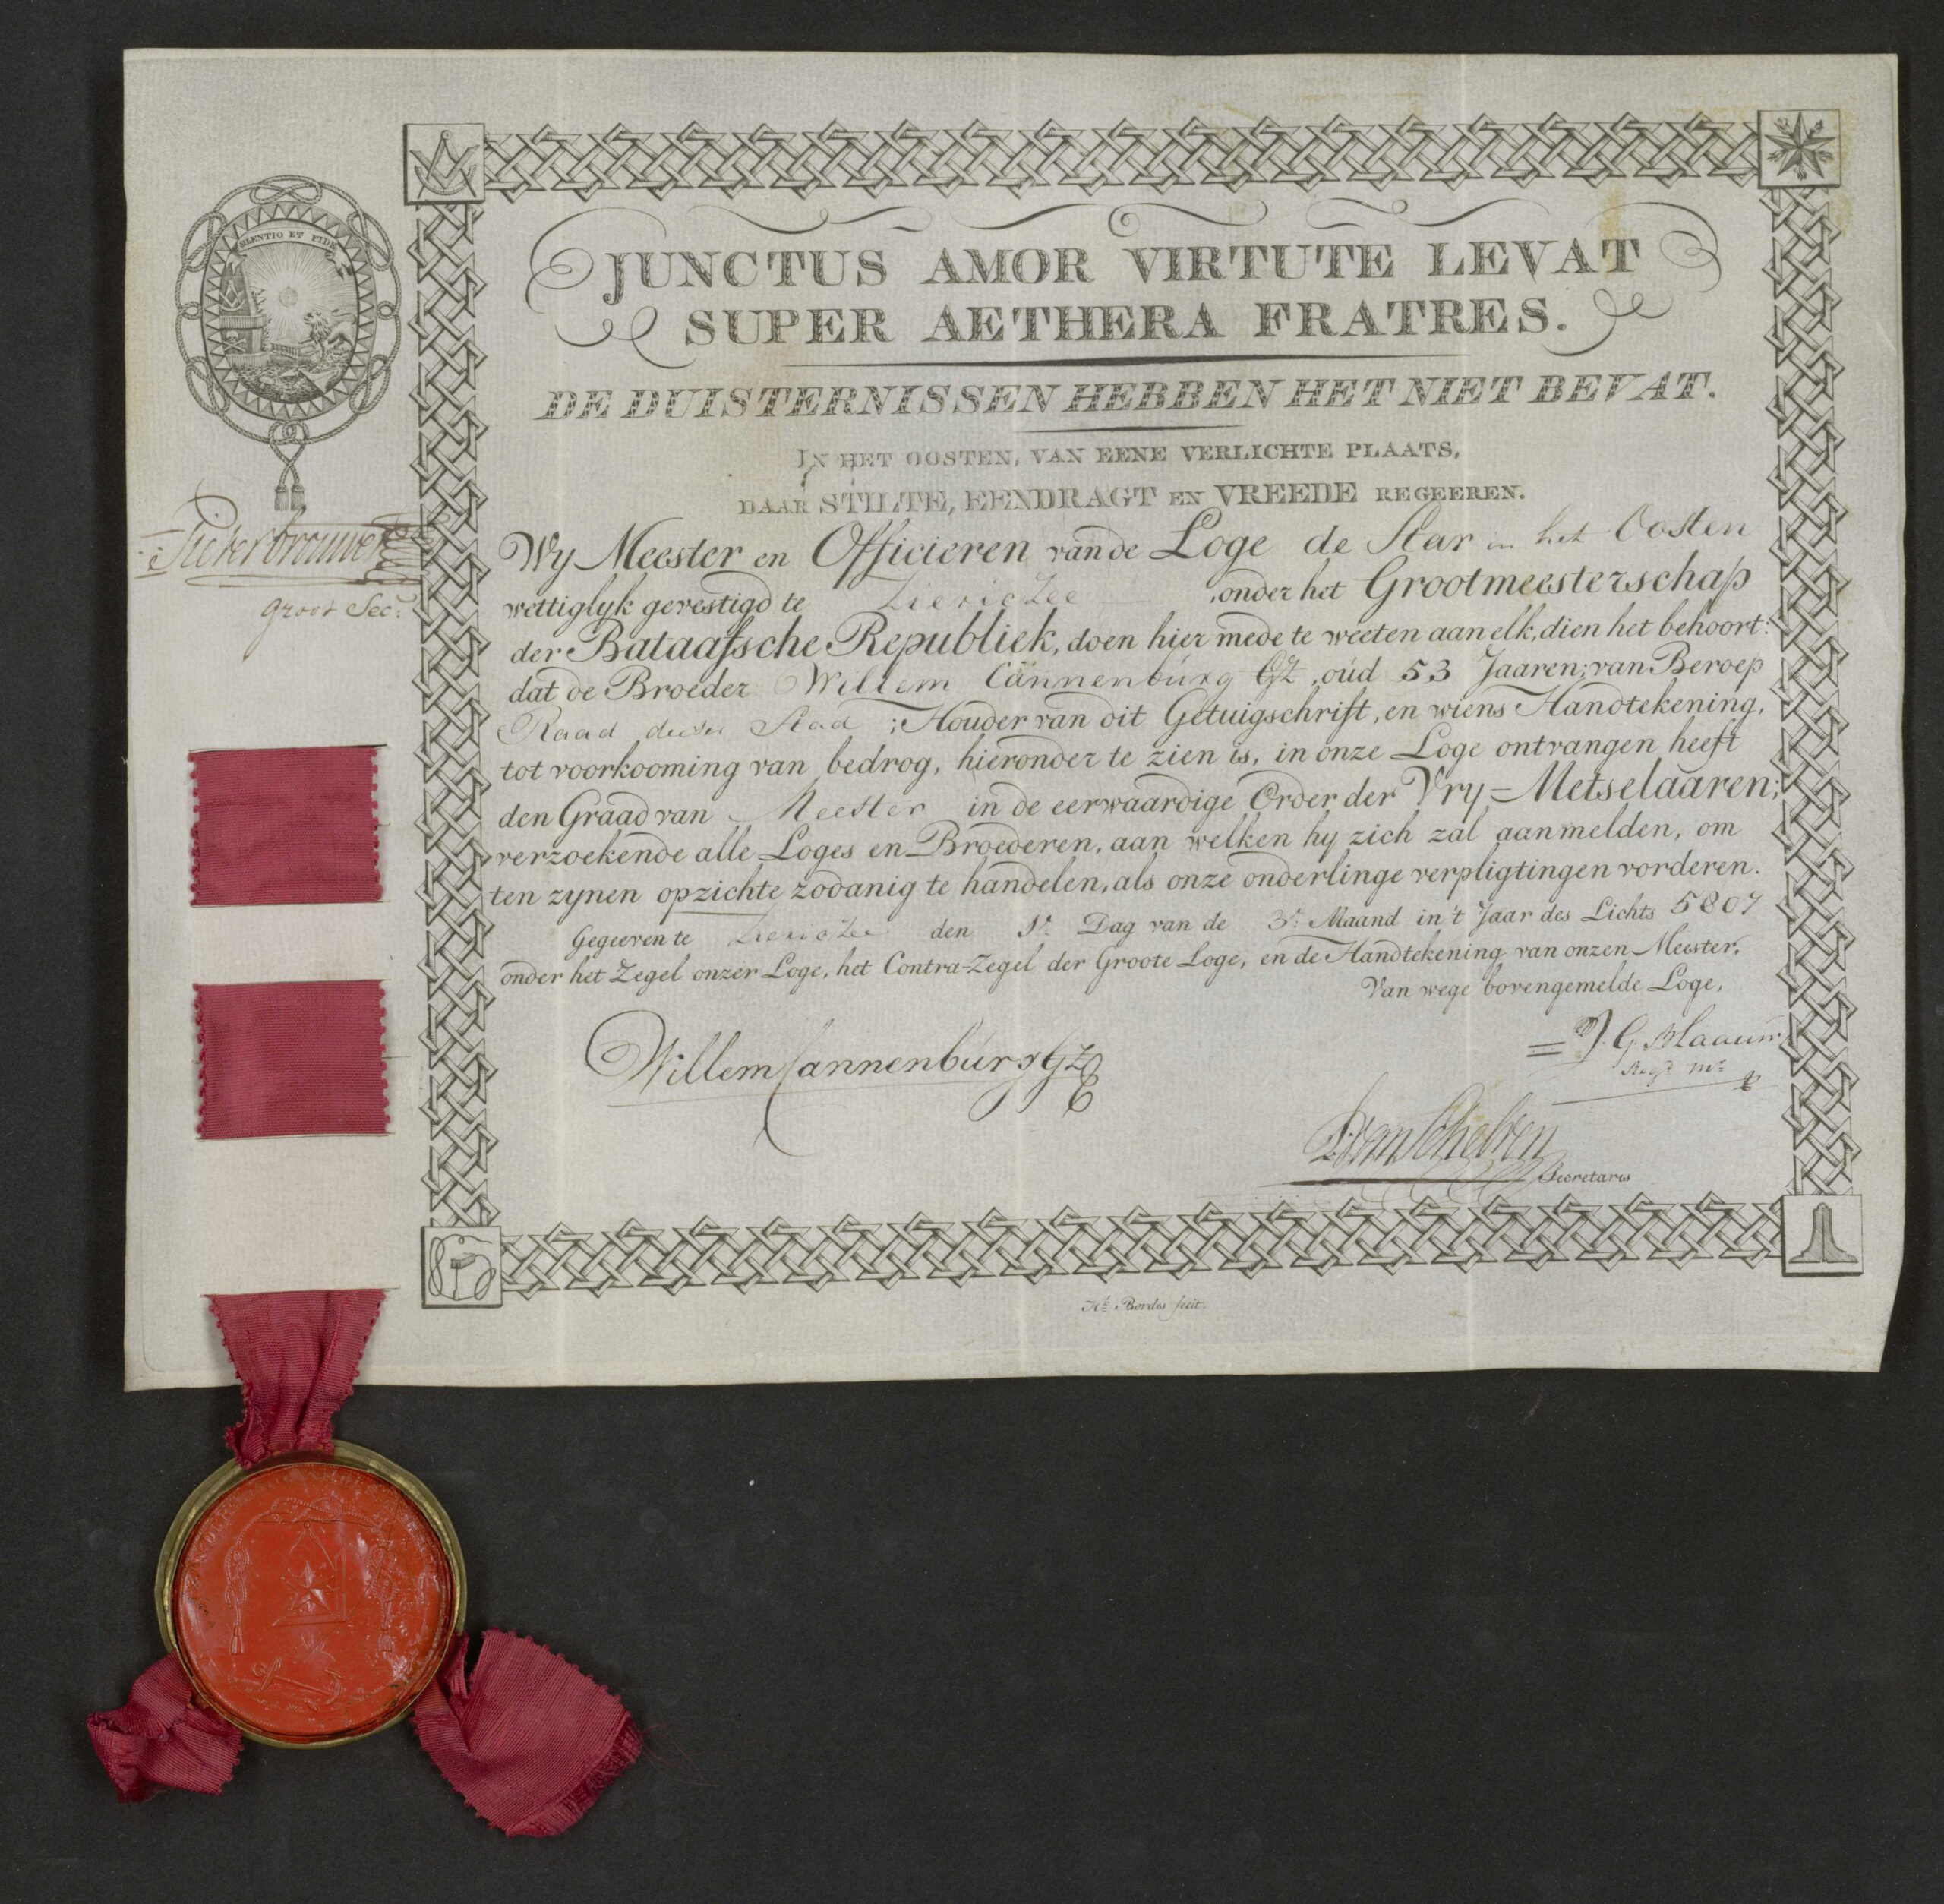 SILENTIO ET FIDE
JUNCTUS AMOR VIRTUTE LEVAT
SUPER AETHERA FRATRES.
DE DUISTERNISSEN HEBBEN HET NIET BEVAT.
IN HET OOSTEN, VAN EENE VERLICHTE PLAATS,
DAAR STILTE, EENDRAGT EN VREEDE REGEEREN.
Wy Meester en Officieren van de Loge de Star in het Oosten
wettiglyk gevestigd te Zierickzee, onder het Grootmeesterschap
der Bataafsche Republiek, doen hier mede te weeten aan elk, dien het behoort:
dat de Broeder Willem Cannenburg Gz, oud 53 Jaaren; van Beroep
Raad deeser Stad; Houder van dit Getuigschrift, en wiens Handtekening,
tot voorkooming van bedrog, hieronder te zien is, in onze Loge ontvangen heeft
den Graad van Meester in de eerwaardige Order der Vry-Metselaaren;
verzoekende alle Loges en Broederen, aan welken hy zich zal aanmelden, om
ten zynen opzichte zodanig te handelen, als onze onderlinge verpligtingen vorderen.
Gegeeven te Zierickzee den 1e Dag van de 3e Maand in 't Jaar des Lichts 5807
onder het Zegel onzer Loge, het Contra-Zegel der Groote Loge, en de Handtekening van onzen Meester.
Van wege bovengemelde Loge,
Willem Cannenburg Gz
J. G. Blaauw
Secretaris
Groot Sec:
Bordes fecit.